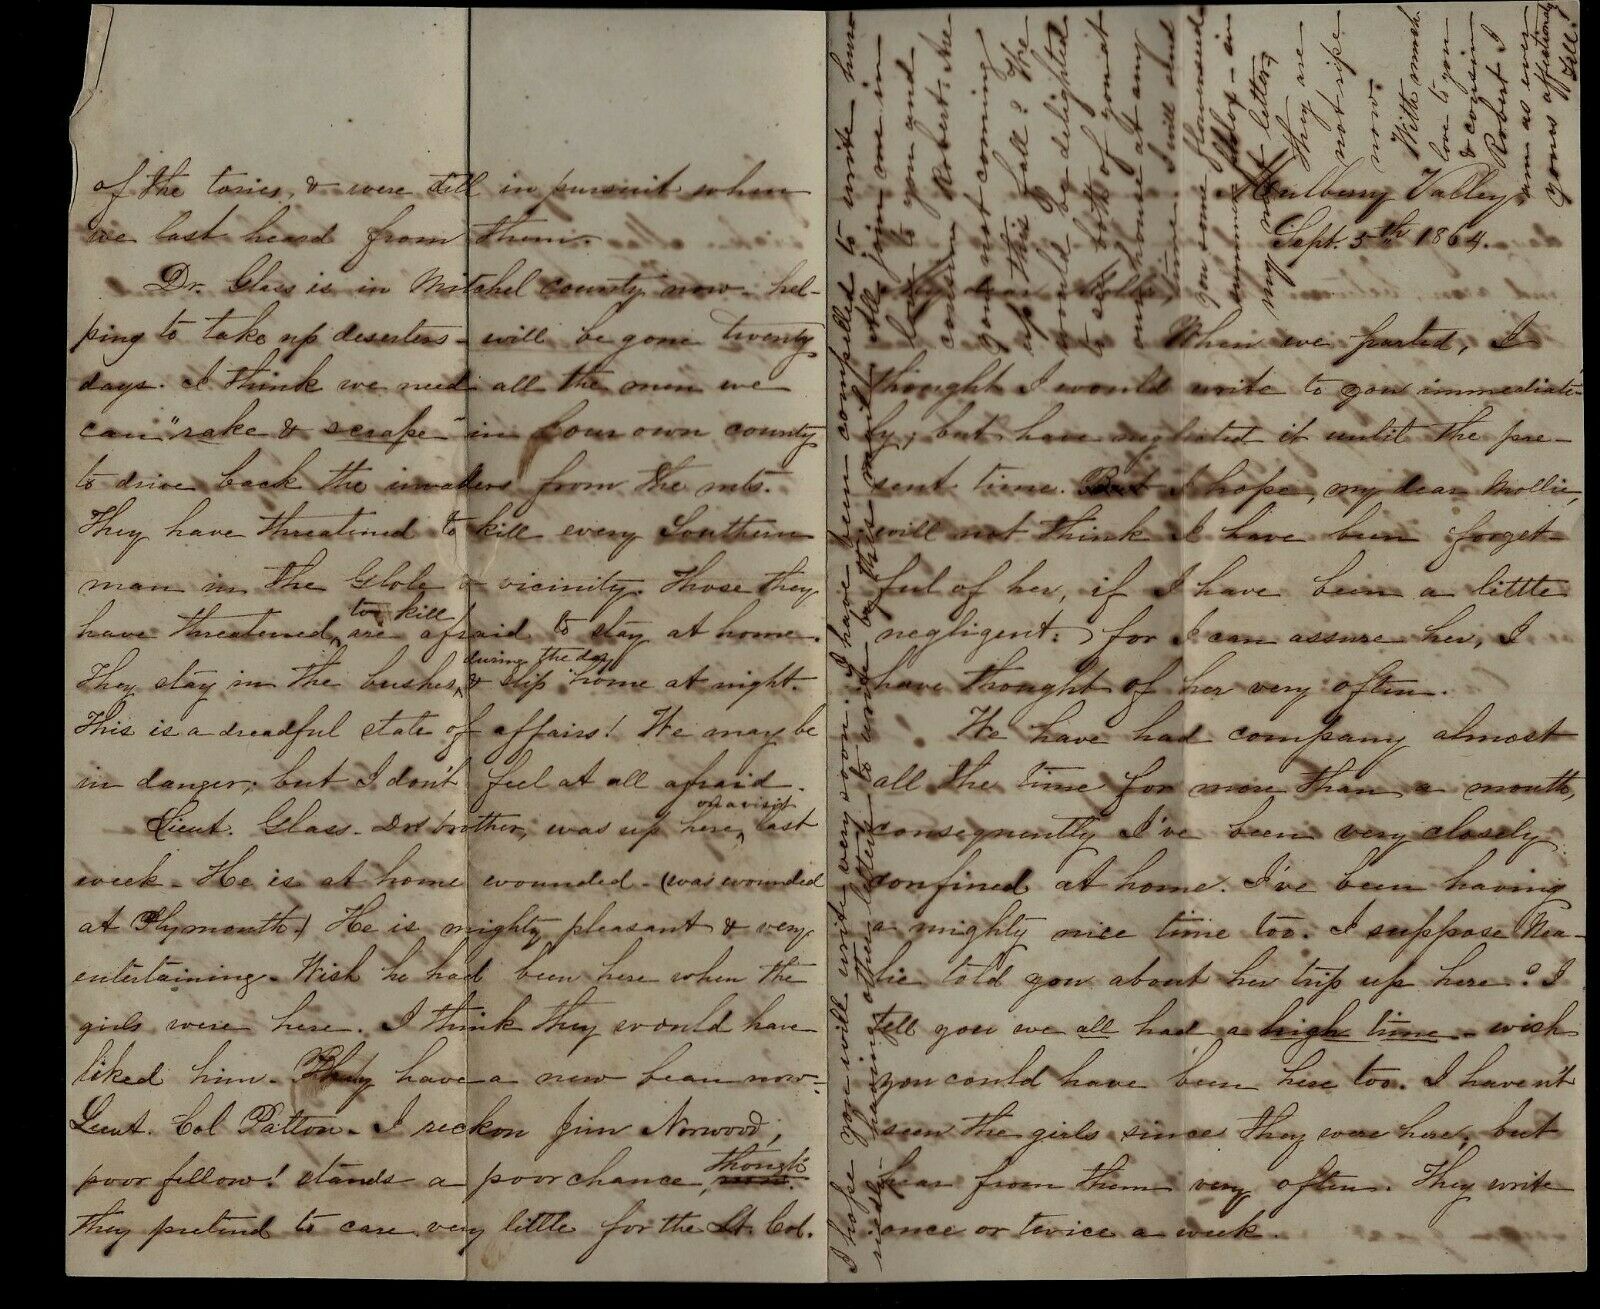 Mulberry Valley
Sept. 5th 1864.
My dear Mollie,
When we parted, I
thought I would write to you immediate-
ly, but have neglected it until the pre-
sent time. But I hope, my dear Mollie,
will not think I have been forget-
ful of her, if I have been a little
negligent: for I can assure her, I
have thought of her very often.
We have had company almost
all the time for more than a month,
consequently I've been very closely
confined at home. I've been having
a mighty nice time too. I suppose
told you about her trip up here? I
tell you we all had a high time - wish
you could have been here too. I haven't
seen the girls since they were here, but
hear from them very often. They write
once or twice a week.
of the tories, & were still in pursuit when
we last heard from them.
Dr. Glass is in Mitchel county now - hel-
ping to take up deserters - will be gone twenty
days. I think we need all the men we
can "rake & scrape" in our own county
to drive back the invaders from the mts.
They have threatened to kill every Southern
man in the Globe & vicinity. Those they
have threatened to kill are afraid to stay at home.
They stay in the bushes during the day & slip home at night.
This is a dreadful state of affairs! We may be
in danger; but I don't feel at all afraid.
Lieut. Glass - Drs brother, was up here on a visit last
week - He is at home wounded - (was wounded
at Plymouth.) He is mighty pleasant & very
entertaining - Wish he had been here when the
girls were here. I think they would have
liked him. They have a new beau now -
Lieut. Col Patton - I reckon Jim Norwood,
poor fellow! stands a poor chance, though
they pretend to care very little for the Lt. Col.
I hope you will write very soon. I have been compelled to write hur-
riedly - having other letters to write by this mail. All join me in
love to you and
cousin Robert. Are
you not coming
up this fall? We
would be delighted
to see both of you at
our house at any
time. I will send
you some flowerseed
- in
my next letter,
they are
not ripe
now.
With much
love to you
& cousin
Robert I
am as ever
yours affectionately